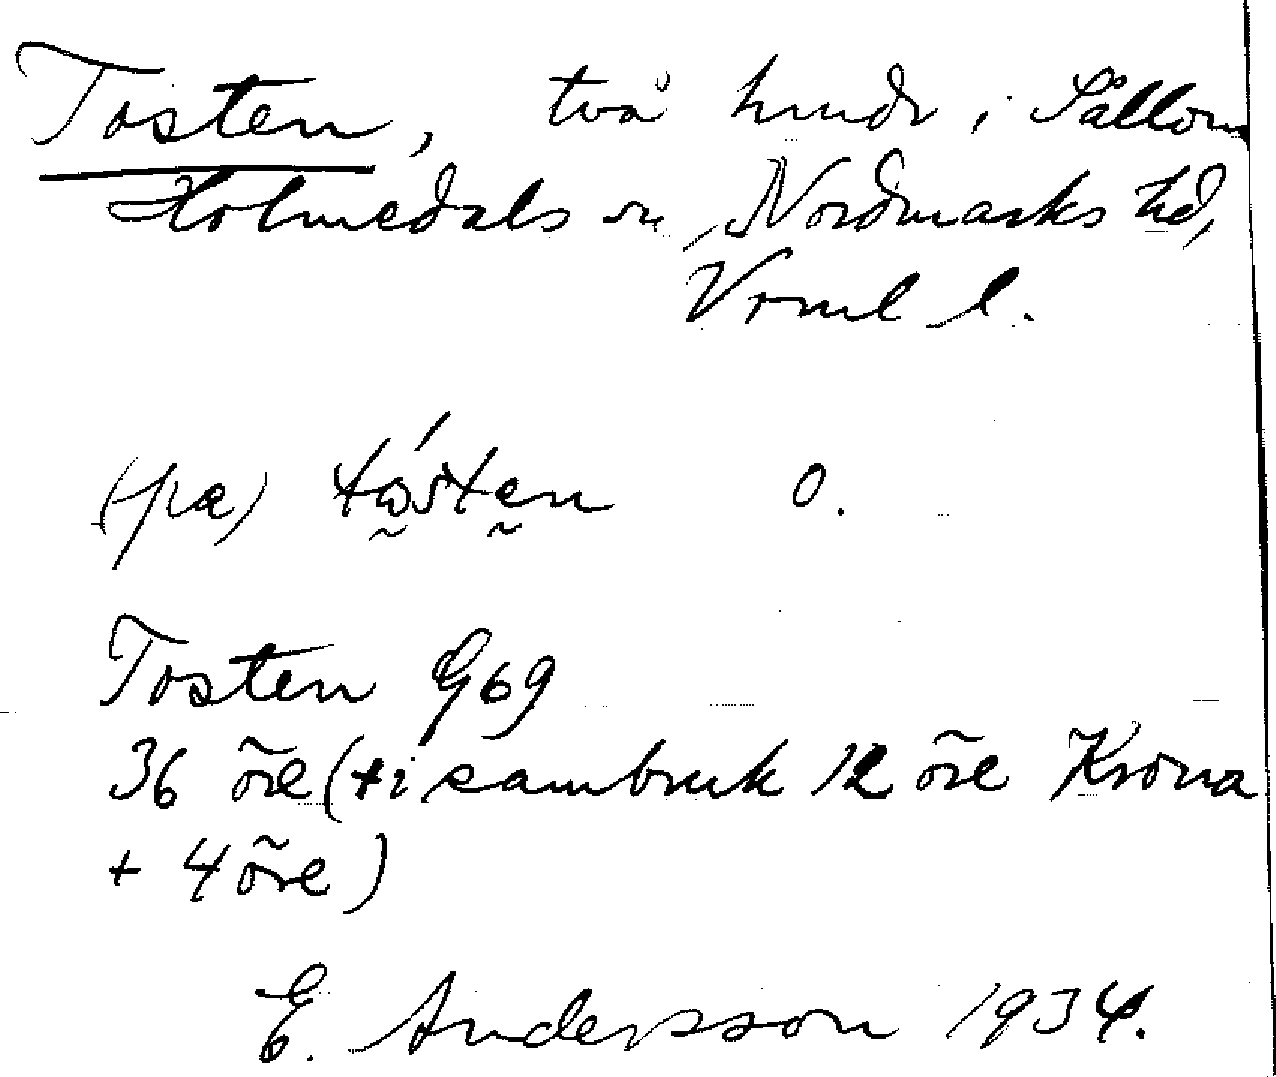 Tosten, två hmdr i Sällom
Holmedals sn, Nordmarks hd,
Vrml l.
(pæ) tås̀ten O.
Tosten G 69
36 öre (+ i sambruk 12 öre Krona
+ 4 öre)
E. Andersson 1934.